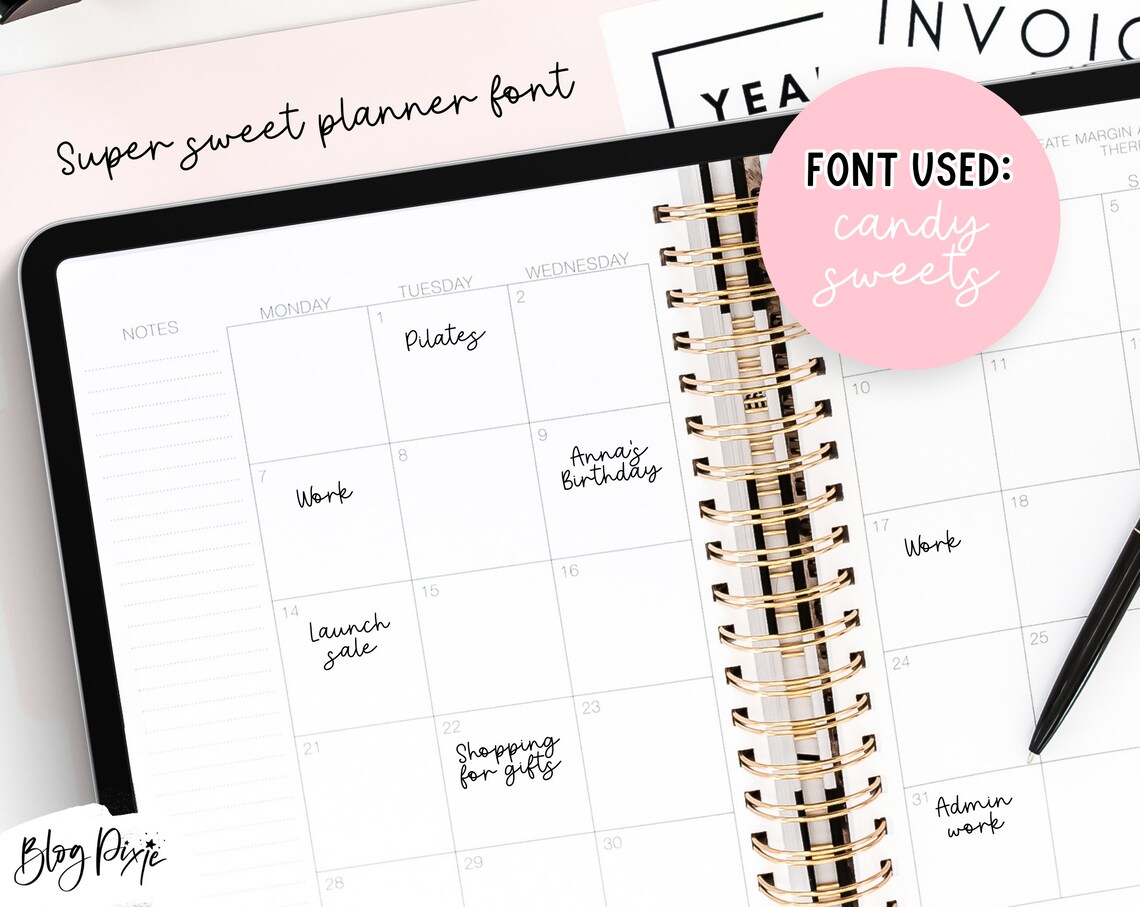 INVOIC
YEA
Super sweet planner font
FONT USED:
candy
sweets
EATE MARGIN A
THER
NOTES
MONDAY
TUESDAY
WEDNESDAY
S
1
Pilates
2
5
7
Work
8
9
Anna's
Birthday
10
11
14
Launch
sale
15
16
17
Work
18
21
22
Shopping
for gifts
23
24
25
28
29
30
31
Admin
work
Blog Pixie